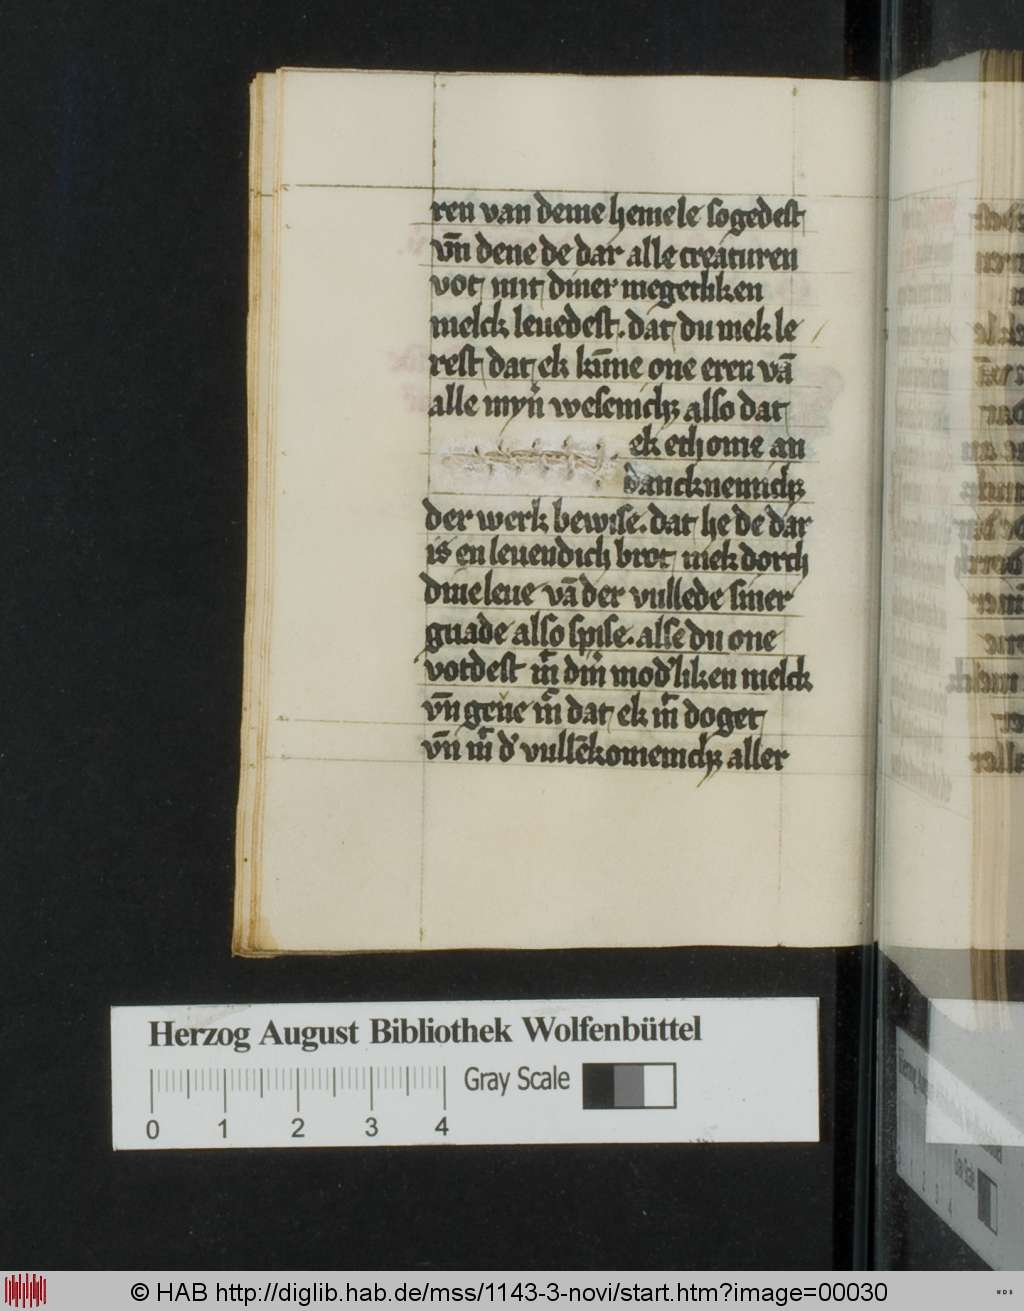 ren van deme hemele sogedest
vn̄ dene de dar alle creaturen
vot mit diner megetliken
melck leuedest. dat du mek le
rest dat ek kūne one eren vā
alle myn̄ wesenich alſo dat
ek ech ome an
dancknemich
der werk bewiſe. dat he de dar
is en leuendich brot mek dorch
dine leue vā der vullede ſiner
gnade alſo ſpiſe. alſe du one
votdest m̄ din̄ mod'liken melck
vn̄ gēne m̄ dat ek m̄ doget
vn̄ m̄ d' vullēkomenich aller
Herzog August Bibliothek Wolfenbüttel
Gray Scale
0 1 2 3 4
© HAB http://diglib.hab.de/mss/1143-3-novi/start.htm?image=00030